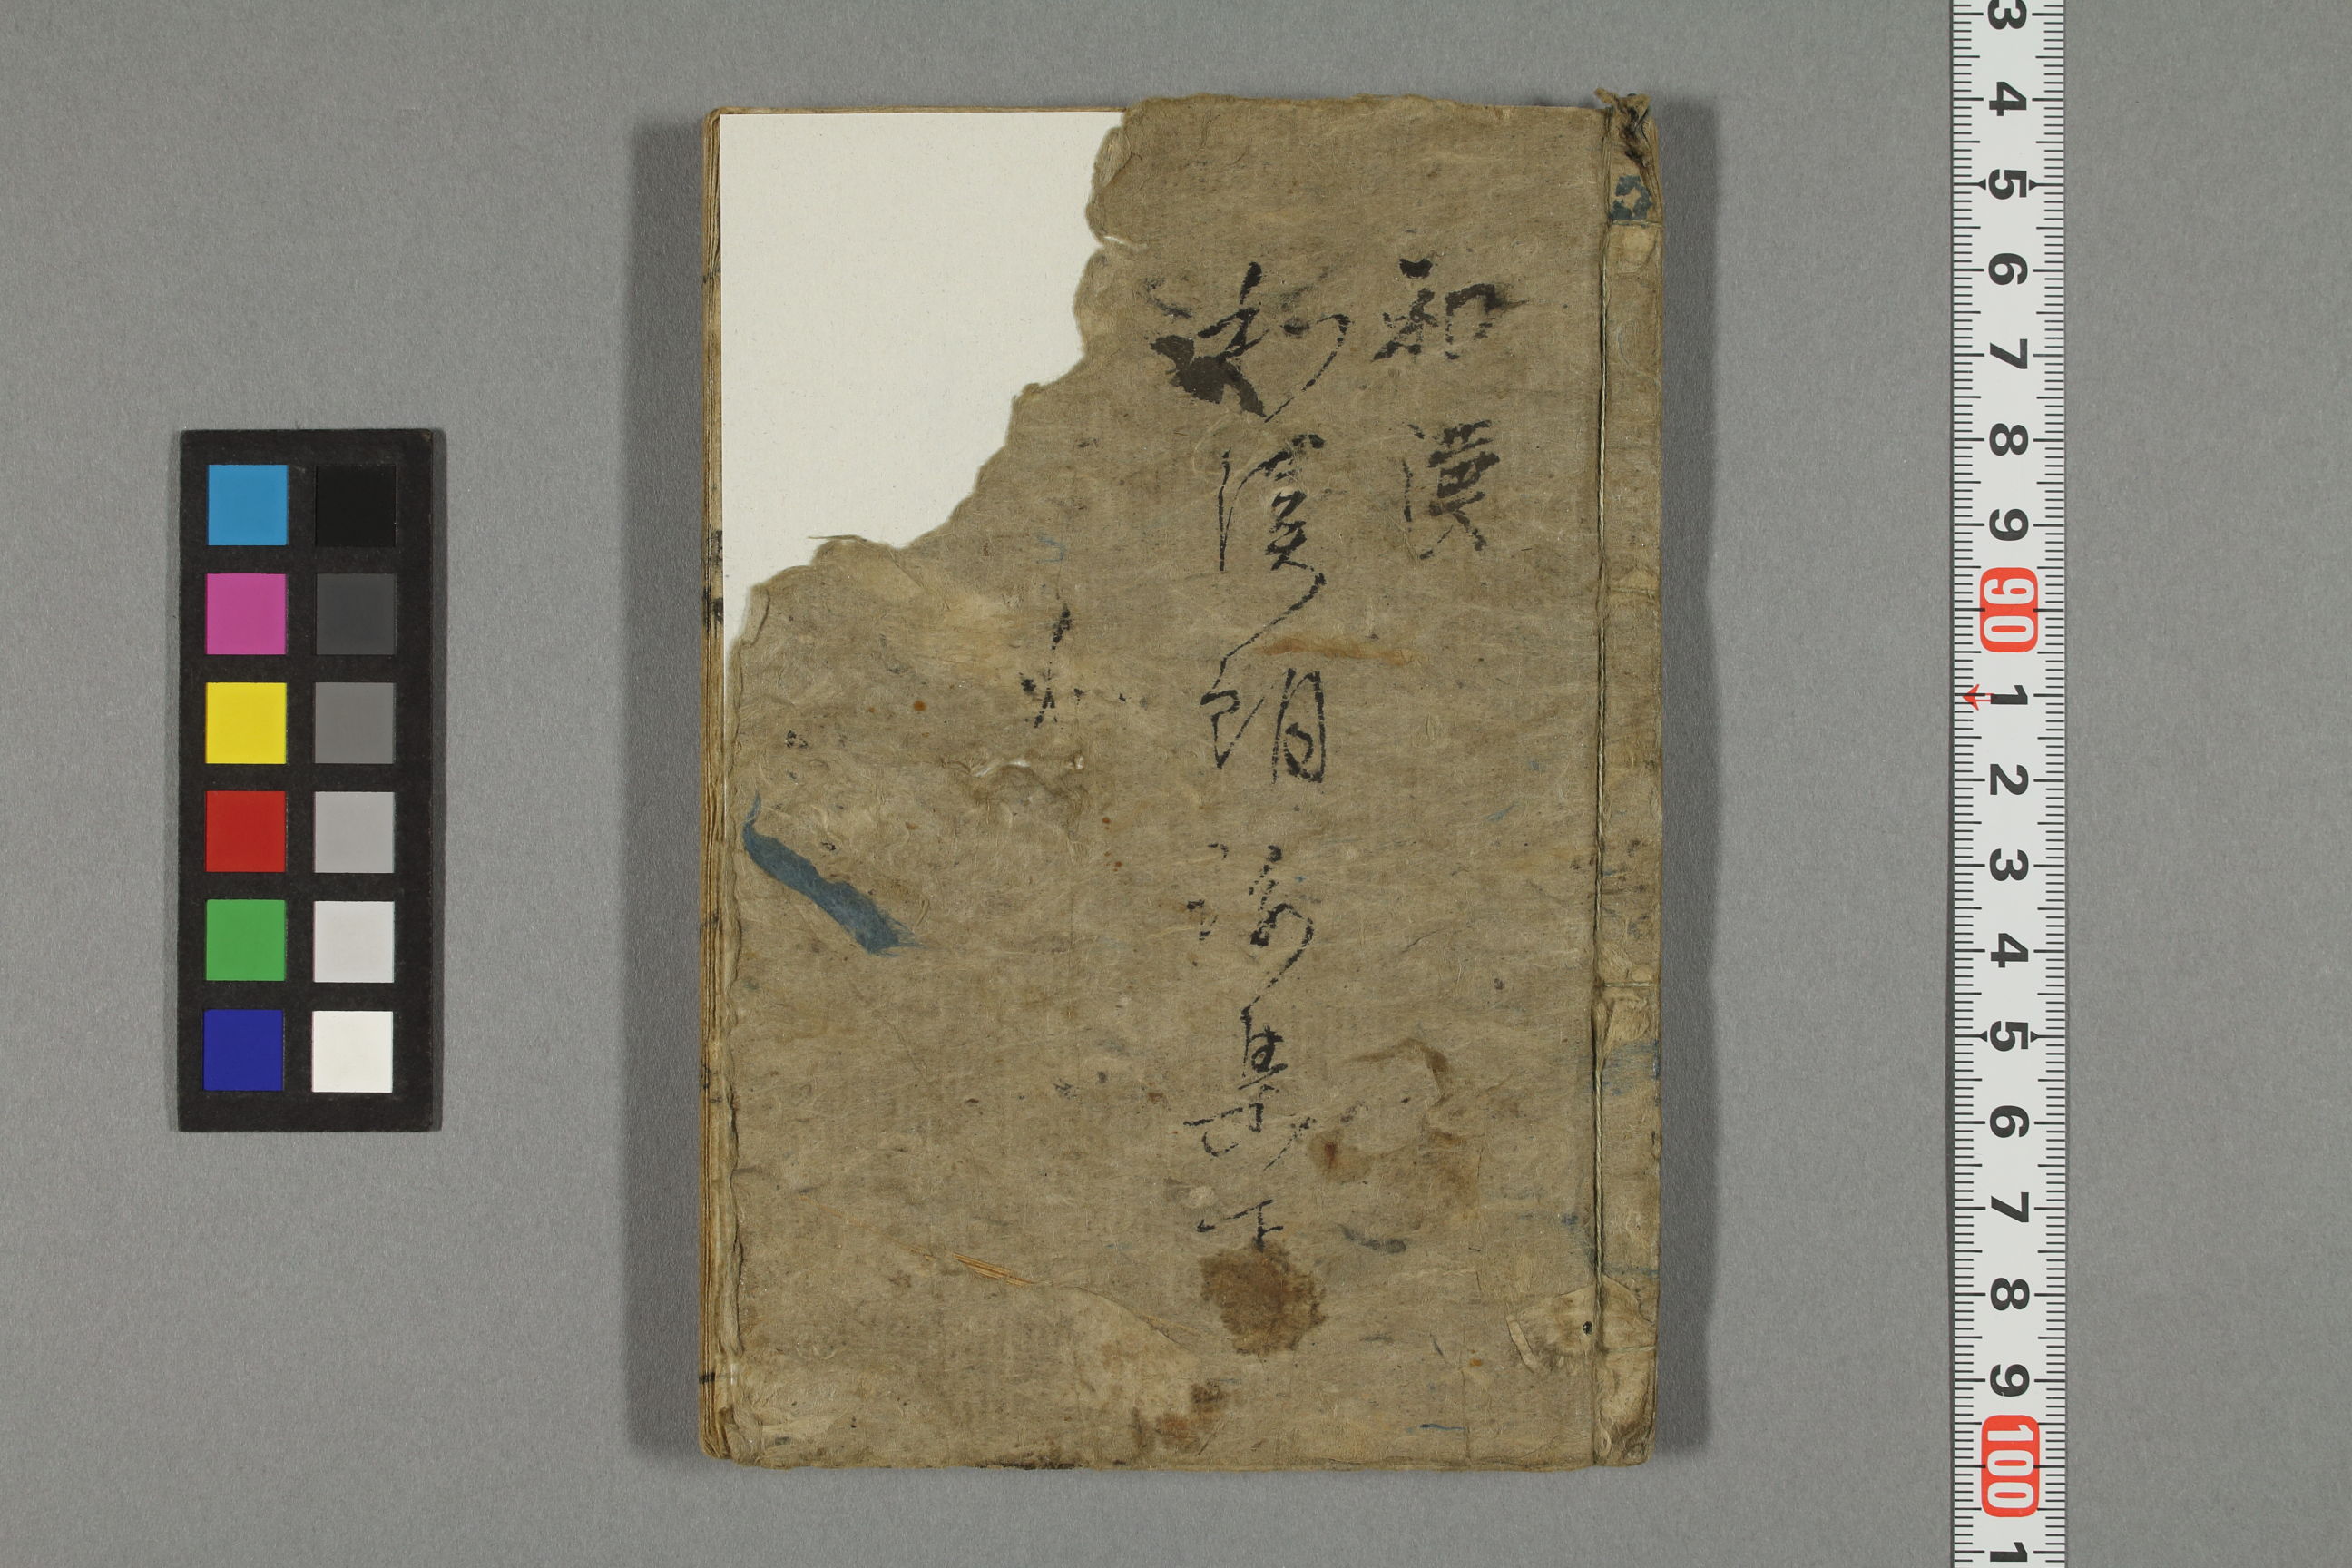 和漢
和漢朗詠集下
3 4 5 6 7 8 9 90 1 2 3 4 5 6 7 8 9 100 1